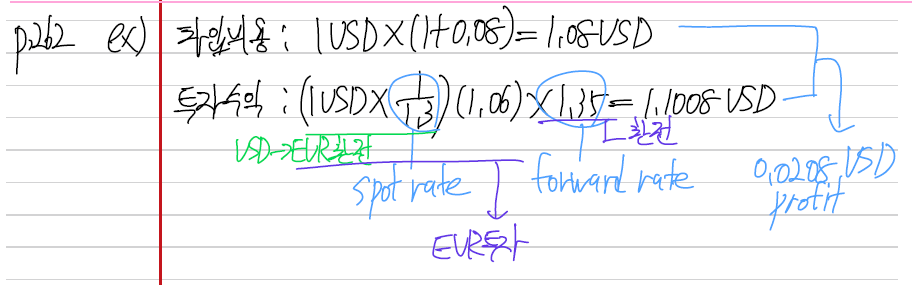 p.262 ex) 차입비용 : 1USD×(1+0.08)=1.08USD
투자수익 : (1USD×1/1.3)(1.06)×1.35=1.1008USD
USD→EUR환전
환전
spot rate
forward rate
0.0208USD
profit
EUR투자